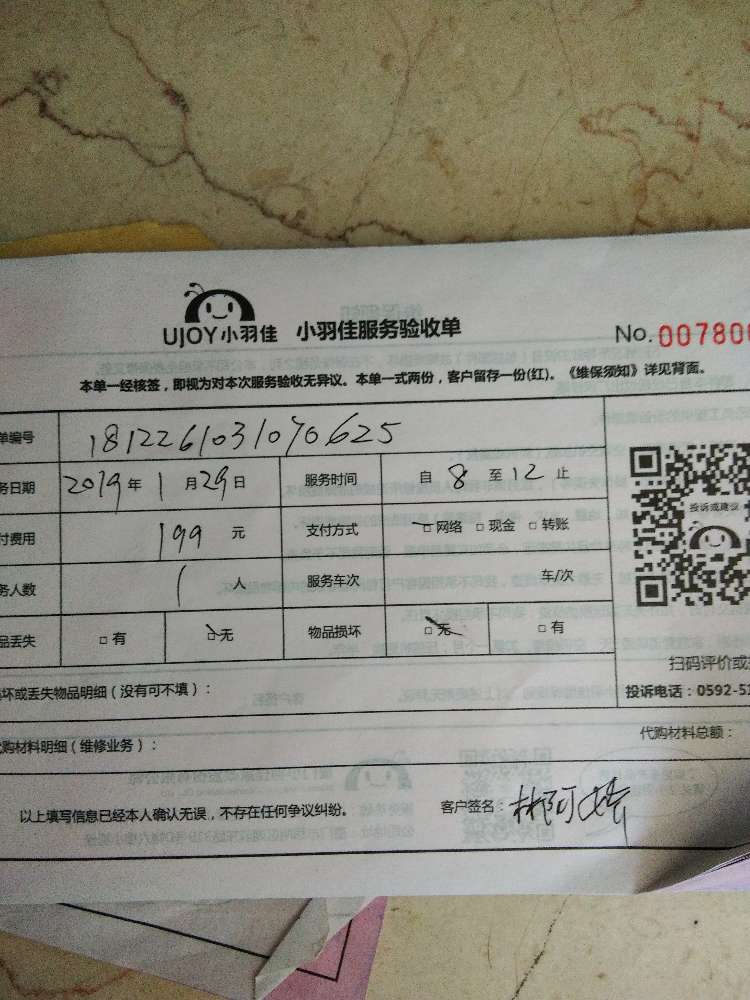 UJOY小羽佳 小羽佳服务验收单 No.00780
本单一经核签，即视为对本次服务验收无异议。本单一式两份，客户留存一份(红)。《维保须知》详见背面。
单编号 1812261031070625
务日期 2019年1月29日 服务时间 自8至12止
付费用 199元 支付方式 □网络 □现金 □转账
务人数 1人 服务车次 车/次
品丢失 □有 □无 物品损坏 □无 □有
投诉或建议
扫码评价或
投诉电话：0592-51
坏或丢失物品明细（没有可不填）：
购材料明细（维修业务）： 代购材料总额：
以上填写信息已经本人确认无误，不存在任何争议纠纷。 客户签名：林阿